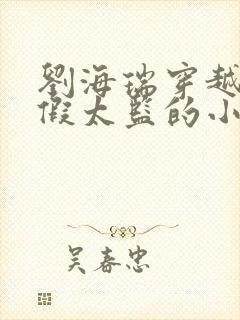 劉海瑞穿越
假太監的小
吴春忠